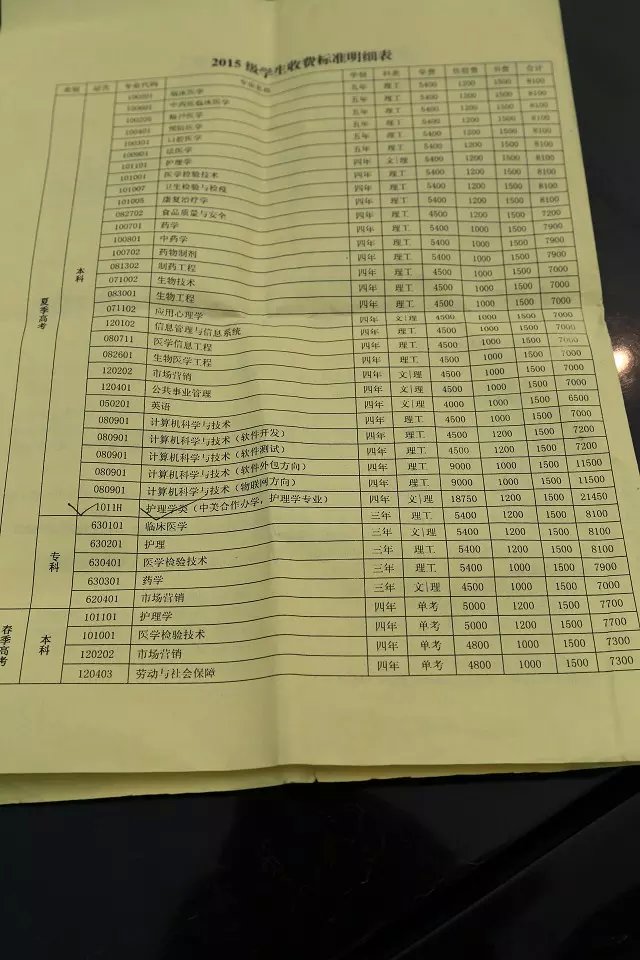 2015 级学生收费标准明细表
类别 层次 专业代码 专业名称 学制 科类 学费 住宿费 书费 合计
夏季高考 本科
100201 临床医学 五年 理工 5400 1200 1500 8100
100601 中西医临床医学 五年 理工 5400 1200 1500 8100
五年 理工 5400 1200 1500 8100
100401 预防医学 五年 理工 5400 1200 1500 8100
100301 口腔医学 五年 理工 5400 1200 1500 8100
100901 法医学 五年 理工 5400 1200 1500 8100
101101 护理学 四年 文|理 5400 1200 1500 8100
101001 医学检验技术 四年 理工 5400 1200 1500 8100
101007 卫生检验与检疫 四年 理工 5400 1200 1500 8100
101005 康复治疗学 四年 理工 5400 1200 1500 8100
082702 食品质量与安全 四年 理工 4500 1200 1500 7200
100701 药学 四年 理工 5400 1000 1500 7900
100801 中药学 四年 理工 5400 1000 1500 7900
100702 药物制剂 四年 理工 5400 1000 1500 7900
081302 制药工程 四年 理工 4500 1000 1500 7000
071002 生物技术 四年 理工 4500 1000 1500 7000
083001 生物工程 四年 理工 4500 1000 1500 7000
071102 应用心理学 四年 文|理 4500 1000 1500 7000
120102 信息管理与信息系统 四年 理工 4500 1000 1500 7000
080711 医学信息工程 四年 理工 4500 1000 1500 7000
082601 生物医学工程 四年 理工 4500 1000 1500 7000
120202 市场营销 四年 文|理 4500 1000 1500 7000
120401 公共事业管理 四年 文|理 4500 1000 1500 7000
050201 英语 四年 文|理 4000 1000 1500 6500
080901 计算机科学与技术 四年 理工 4500 1000 1500 7000
080901 计算机科学与技术（软件开发） 四年 理工 4500 1200 1500 7200
080901 计算机科学与技术（软件测试） 四年 理工 4500 1200 1500 7200
080901 计算机科学与技术（软件外包方向） 四年 理工 9000 1000 1500 11500
080901 计算机科学与技术（物联网方向） 四年 理工 9000 1000 1500 11500
1011H 护理学类（中美合作办学，护理学专业） 四年 文|理 18750 1200 1500 21450
专科
630101 临床医学 三年 理工 5400 1200 1500 8100
630201 护理 三年 文|理 5400 1200 1500 8100
630401 医学检验技术 三年 理工 5400 1200 1500 8100
630301 药学 三年 理工 5400 1000 1500 7900
620401 市场营销 三年 文|理 4500 1000 1500 7000
春季高考 本科
101101 护理学 四年 单考 5000 1200 1500 7700
101001 医学检验技术 四年 单考 5000 1200 1500 7700
120202 市场营销 四年 单考 4800 1000 1500 7300
120403 劳动与社会保障 四年 单考 4800 1000 1500 7300